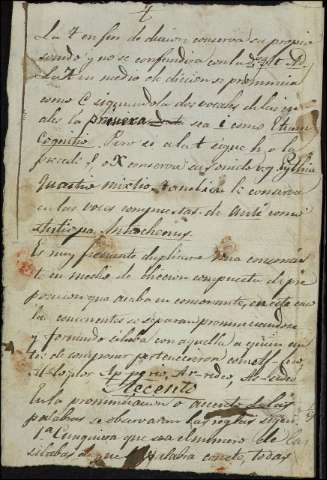 t
La t en fin de diccion conserva su propio
sonido y no se confundirá con la d
La t en medio de diccion se pronuncia
como C siguiendola dos vocales de las qua
les la primera sea i como Etiam
Cognitio. Pero si a la t sigue h, o la
precede S o X conserva su sonido v. g. Pythia
Quæstio mixtio tambien le conserva
en las voces compuestas de Anti como
Antiopa, Antiochenus.
Es muy frecuente duplicarse una consonan
te en medio de diccion compuesta de pre
posicion que acaba en consonante, en este caso
las concinentes se separan pronunciandose
y formando silaba con aquella a quien an
tes de componer pertenecieron como
Ap perio, Ac cedo,
Accento
En la pronunciacion o accento de las
palabras se observaran las reglas siguien
1ª Cualquiera que sea el numero de las
silabas de que la palabra conste, todas